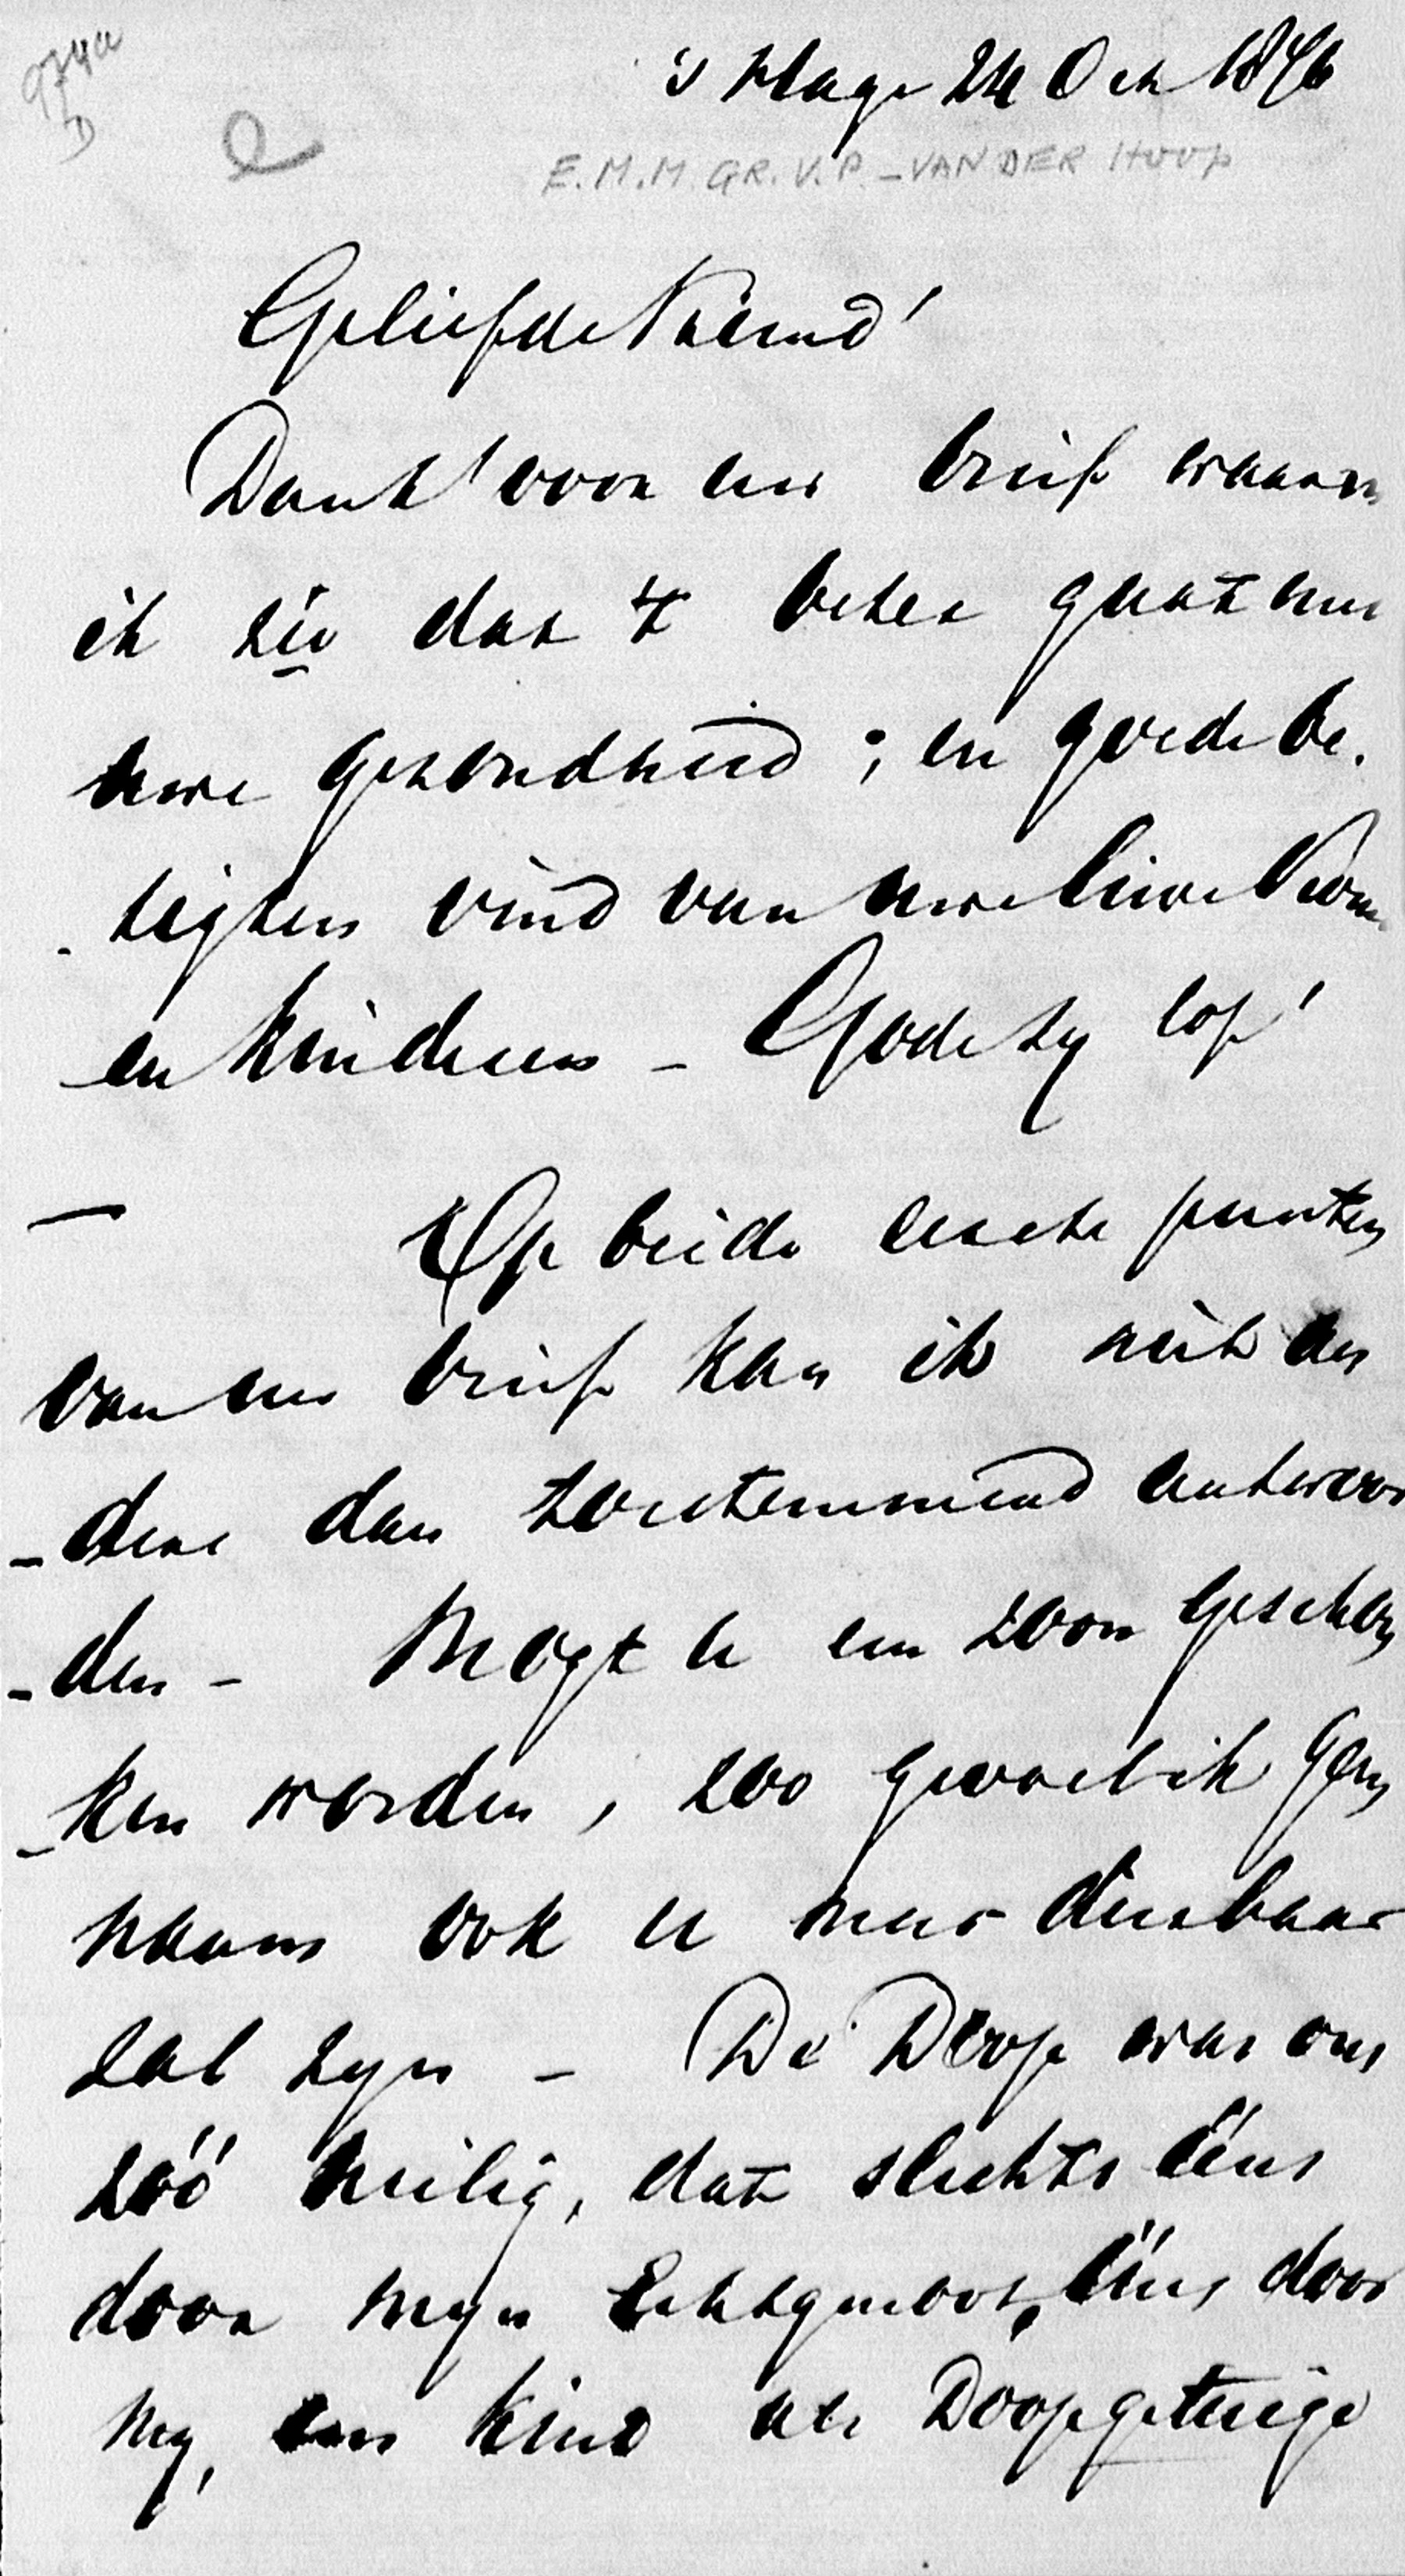 's Hage 24 Oct 1876
E.M.M. GR. V. P. - VAN DER HOOP
Geliefde Vriend!
Dank voor uw brief waarin
ik zie dat 't beter gaat met
uwe gezondheid; en goede be-
- rigten vind van uwe lieve Vrouw
en kinderen - Gode zy lof!
— Op beide laatste punten
van uw brief kan ik niet an
- ders dan toestemmend antwoor
- den - Mogt u een zoon geschon
- ken worden, zoo gevoel ik
naam ook u meer dierbaar
zal zyn - De Doop was ons
zóó heilig, dat slechts ééns
door myn Echtgenoot, ééns door
my, een kind als Doopgetuige